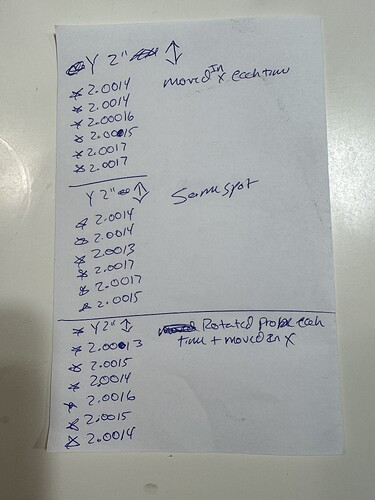 Y 2" ↕
moved In X each time
* 2.0014
* 2.0014
* 2.00016
* 2.00015
* 2.0017
* 2.0017
Y 2" ↕
Same spot
* 2.0014
* 2.0014
* 2.0013
* 2.0017
* 2.0017
* 2.0015
* Y 2" ↕
Rotated probe each
time + moved in X
* 2.00013
* 2.0015
* 2.0014
* 2.0016
* 2.0015
* 2.0014